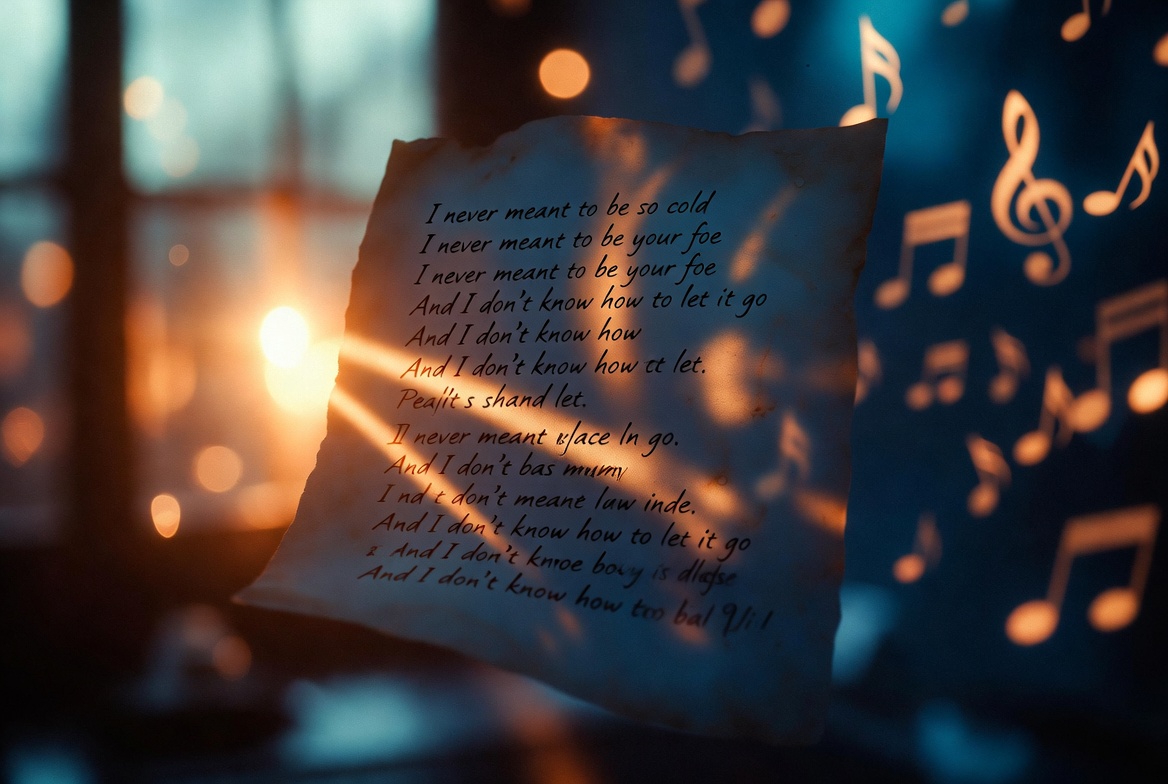 I never meant to be so cold
I never meant to be your foe
I never meant to be your foe
And I don't know how to let it go
And I don't know how
And I don't know how let.
shand let.
never meant In go.
And I don't bas
I nd t don't meant luw inde.
And I don't know how to let it go
And I don't is
And I don't know how too bal